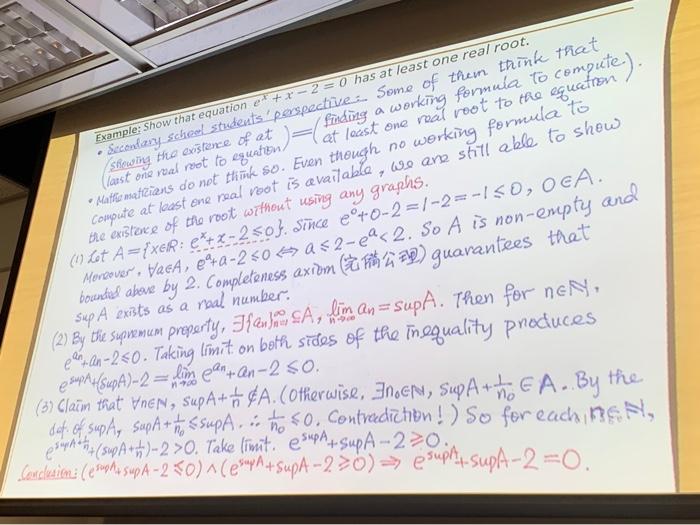 Example: Show that equation e^x + x − 2 = 0 has at least one real root.
• Secondary school students' perspective: Some of them think that
(showing the existence of at least one real root to equation) = (finding a working formula to compute at least one real root to the equation).
• Mathematicians do not think so. Even though no working formula to
compute at least one real root is available, we are still able to show
the existence of the root without using any graphs.
(1) Let A = {x∈ℝ: e^x+x-2≤0}. Since e^0+0-2=1-2=-1≤0, 0∈A.
Moreover, ∀a∈A, e^a+a-2≤0 ⇔ a≤2-e^a<2. So A is non-empty and
bounded above by 2. Completeness axiom (完備公理) guarantees that
sup A exists as a real number.
(2) By the supremum property, ∃{an}_{n=1}^∞ ⊆A, lim_{n→∞} an = supA. Then for n∈ℕ,
e^{an}+an-2≤0. Taking limit on both sides of the inequality produces
e^{supA}+(supA)-2 = lim_{n→∞} e^{an}+an-2 ≤0.
(3) Claim that ∀n∈ℕ, supA+1/n ∉A. (Otherwise, ∃n₀∈ℕ, supA+1/n₀ ∈A. By the
def. of supA, supA+1/n₀ ≤supA. ∴ 1/n₀ ≤0. Contradiction!) So for each n∈ℕ,
e^{supA+1/n}+(supA+1/n)-2 >0. Take limit. e^{supA}+supA-2≥0.
Conclusion: (e^{supA}+supA-2≤0) ∧ (e^{supA}+supA-2≥0) ⇒ e^{supA}+supA-2=0.